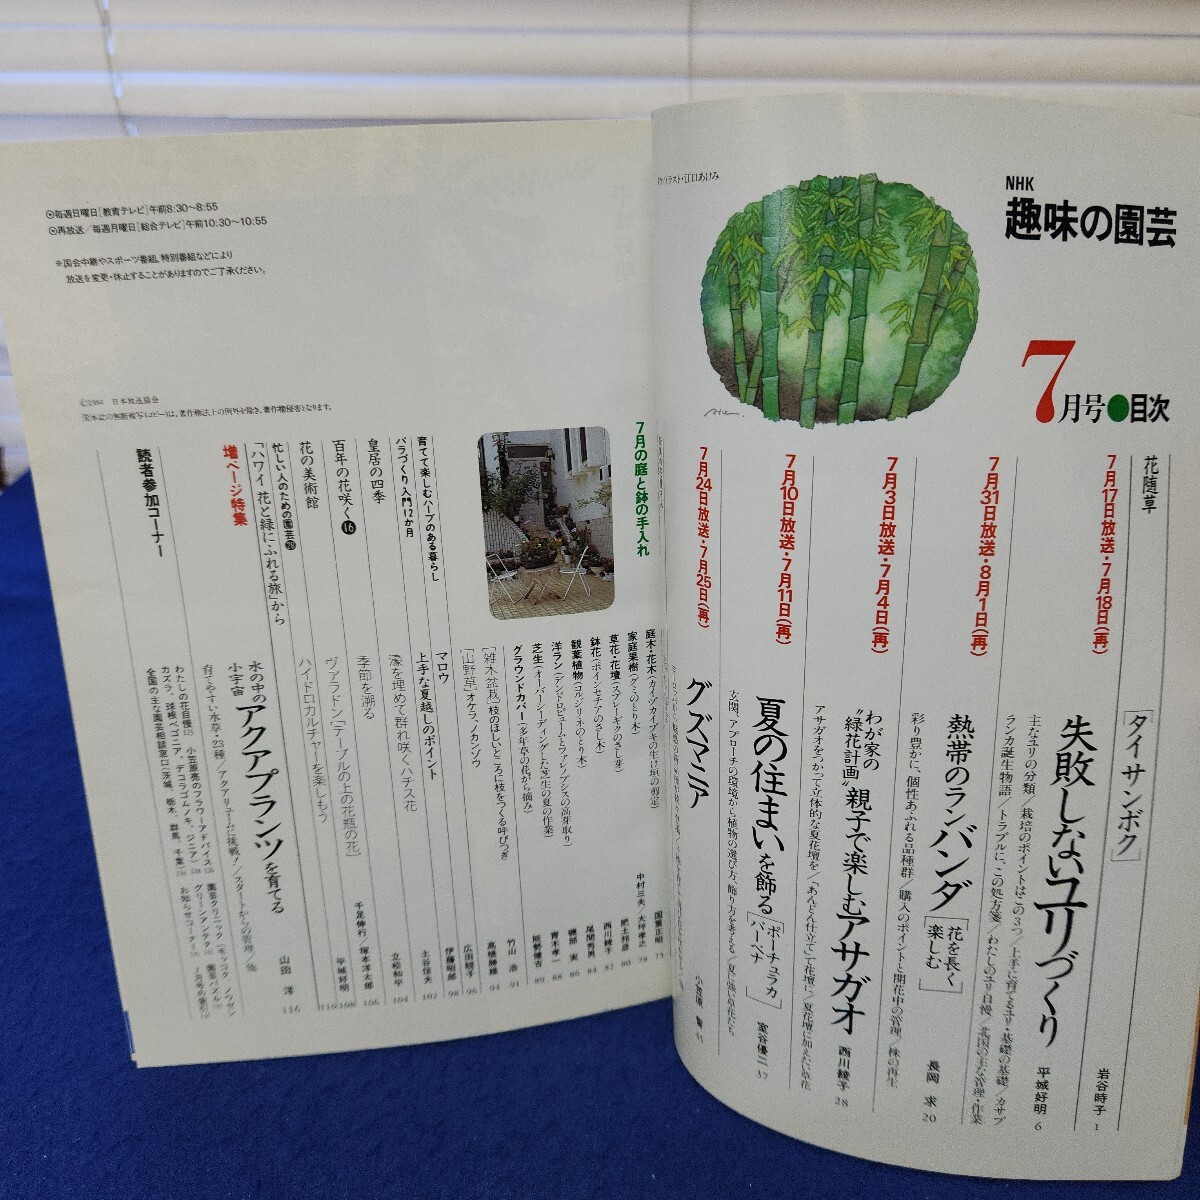 NHK
趣味の園芸
7月号●目次
イラスト・江口あけみ
花随草
[タイサンボク]
岩谷時子 1
7月17日放送・7月18日(再)
失敗しないユリづくり
主なユリの分類/栽培のポイントはこの3つ/上手に育てるユリ・基礎の基礎/カサブ
ランカ誕生物語/トラブルに、この処方箋/わたしのユリ自慢/北国の主な管理・作業
平城好明 6
7月31日放送・8月1日(再)
熱帯のランバンダ[花を長く楽しむ]
彩り豊かに、個性あふれる品種群/購入のポイントと開花中の管理/株の再生
長岡 求 20
7月3日放送・7月4日(再)
わが家の“緑花計画”親子で楽しむアサガオ
アサガオをつかって立体的な夏花壇を/「あんどん仕立て」で花壇に/夏花壇に加えたい草花
西川綾子 28
7月10日放送・7月11日(再)
夏の住まいを飾る[ポーチュラカ バーベナ]
玄関、アプローチの環境から植物の選び方、飾り方を考える/夏に強い草花たち
室谷優二 37
7月24日放送・7月25日(再)
グズマニア
⊙毎週日曜日[教育テレビ]午前8:30〜8:55
⊙再放送/毎週月曜日[総合テレビ]午前10:30〜10:55
※国会中継やスポーツ番組、特別番組などにより
放送を変更・休止することがありますのでご了承ください。
©1994 日本放送協会
本誌の無断複写(コピー)は、著作権法上の例外を除き、著作権侵害となります。
7月の庭と鉢の手入れ
庭木・花木(カイヅカイブキの生け垣の剪定) 国重正昭 75
家庭果樹(グミのとり木) 中村三夫、大坪孝之 78
草花・花壇(スプレーギクのさし芽) 肥土邦彦 80
鉢花(ポインセチアのさし木) 西川綾子 82
観葉植物(コルジリネのとり木) 尾関秀男 84
洋ラン(デンドロビュームとファレノプシスの高芽取り) 磯部 実 86
芝生(オーバーシーディングした芝生の夏の作業) 青木孝一 88
グラウンドカバー(多年草の花がら摘み) 能勢健吉 89
[雑木盆栽]枝のほしいところに枝をつくる呼びつぎ 竹山 浩 91
[山野草]オケラ、ノカンゾウ 高橋勝雄 94
育てて楽しむハーブのある暮らし
マロウ 広田靚子 96
バラづくり入門12か月
上手な夏越しのポイント 伊藤昭郎 98
皇居の四季
濠を埋めて群れ咲くハチス花
百年の花咲く⑯
季節を溯る
花の美術館
ヴァラドン「テーブルの上の花瓶の花」 千足伸行/塚本洋太郎 106
忙しい人のための園芸
ハイドロカルチャーを楽しもう 平城好明 108
「ハワイ 花と緑にふれる旅」から 110
増ページ特集
水の中の小宇宙 アクアプランツを育てる
育てやすい水草・23種/アクアリュームに挑戦!/スタートからの管理/他
山田 洋 116
読者参加コーナー
わたしの花自慢
小笠原亮のフラワーアドバイス
カズラ、球根ベゴニア、デコラゴムノキ、ジニア)
全国の主な園芸相談窓口(茨城、栃木、群馬、千葉)